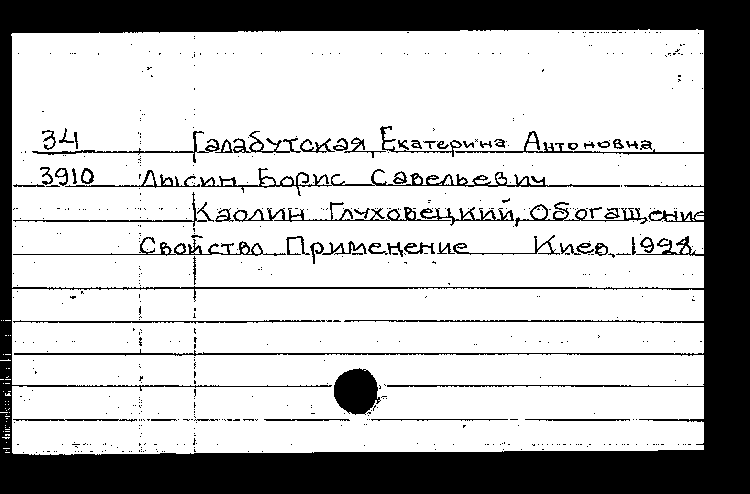 34 Галабутская, Екатерина Антоновна
3910 Лысин, Борис Савельевич
Каолин Глуховецкий, Обогащение
Свойство Применение Киев, 1928